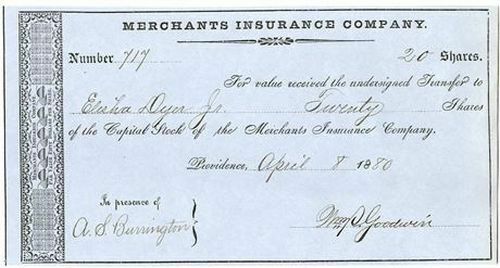 MERCHANTS INSURANCE COMPANY.
Number 717 20 Shares.
For value received the undersigned Transfer to
Elisha Dyer Jr. Twenty Shares
of the Capital Stock of the Merchants Insurance Company.
Providence, April 8 1880
In presence of
A. S. Burrington
Wm. Goodwin